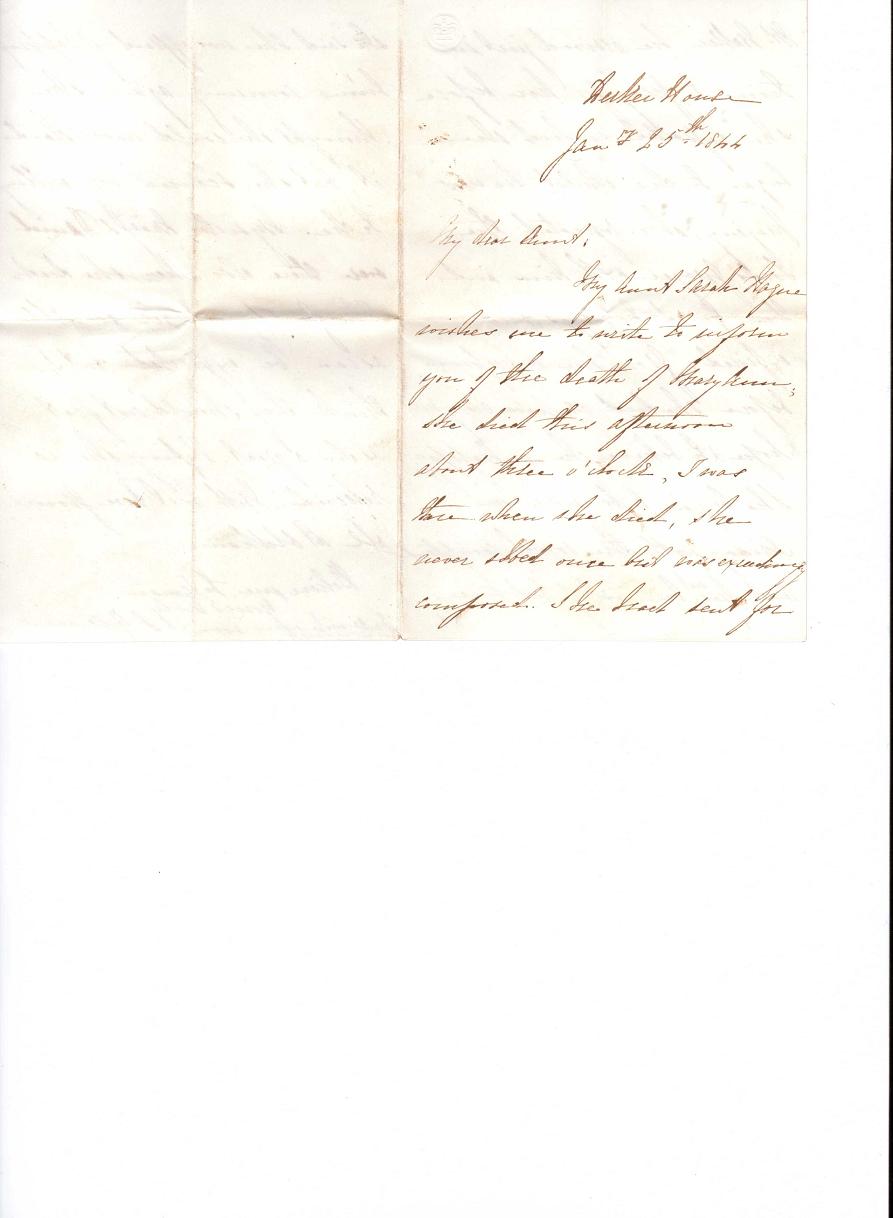 House
Jany 25th 1844
My dear Aunt,
My Aunt Sarah Hague
wishes me to write to inform
you of the death of Mary Ann,
she died this afternoon
about three o'clock, I was
there when she died, she
never once but was exceedingly
composed. She had sent for